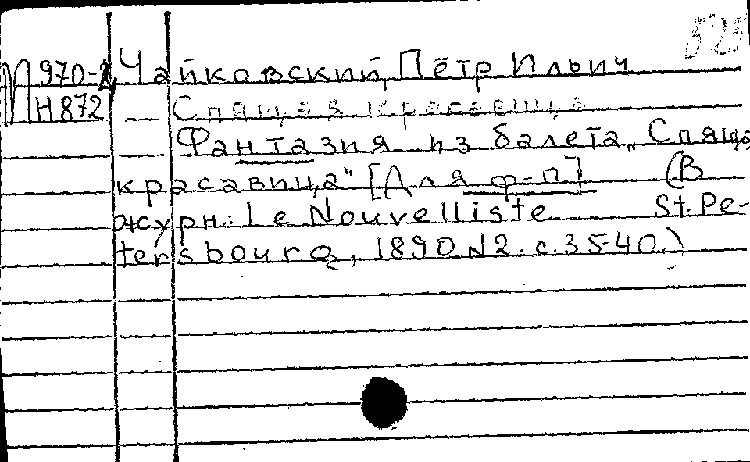 523
П 970-2 Чайковский, Пётр Ильич
Н872 Спящая красавица
Фантазия из балета „Спящая
красавица" [Для ф-п] (В
журн: Le Nouvelliste St. Pe-
tersbourg, 1890 N2. с. 35-40.)